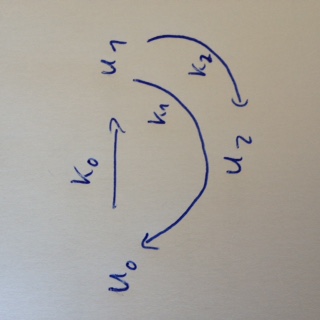 K₀
u₀ u₁
K₁
K₂
u₂